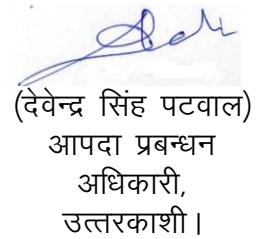 (देवेन्द्र सिंह पटवाल)
आपदा प्रबन्धन
अधिकारी,
उत्तरकाशी।